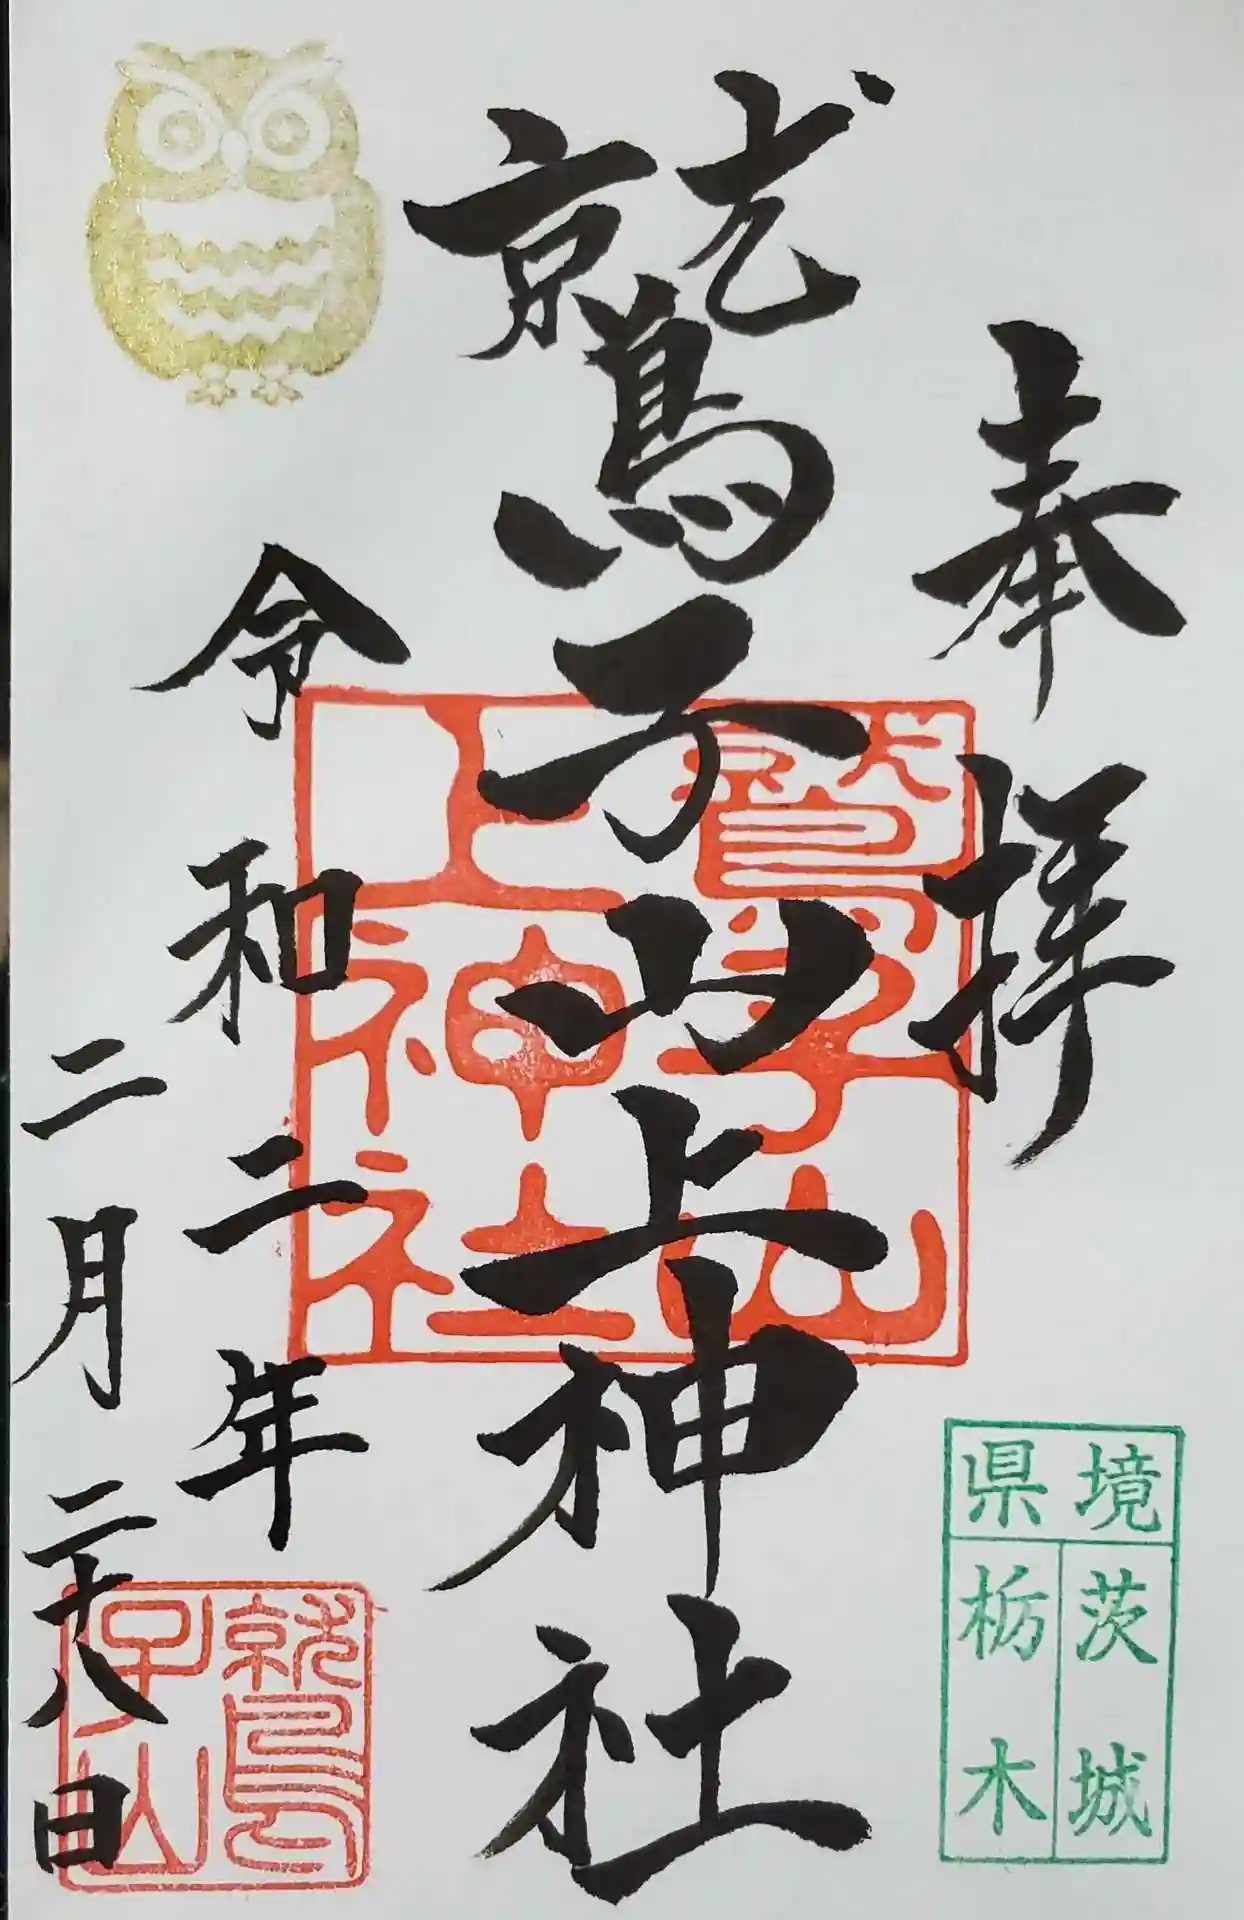 奉拝
鷲子山上神社
令和二年
二月二十八日
鷲子山
上神社
鷲子山
県境
茨城
栃木